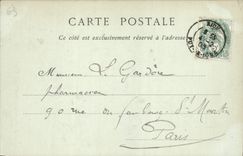 63
CARTE POSTALE
Ce côté est exclusivement réservé à l'adresse
Monsieur Le Gardon
pharmacien
90 rue du faubourg St Martin
Paris